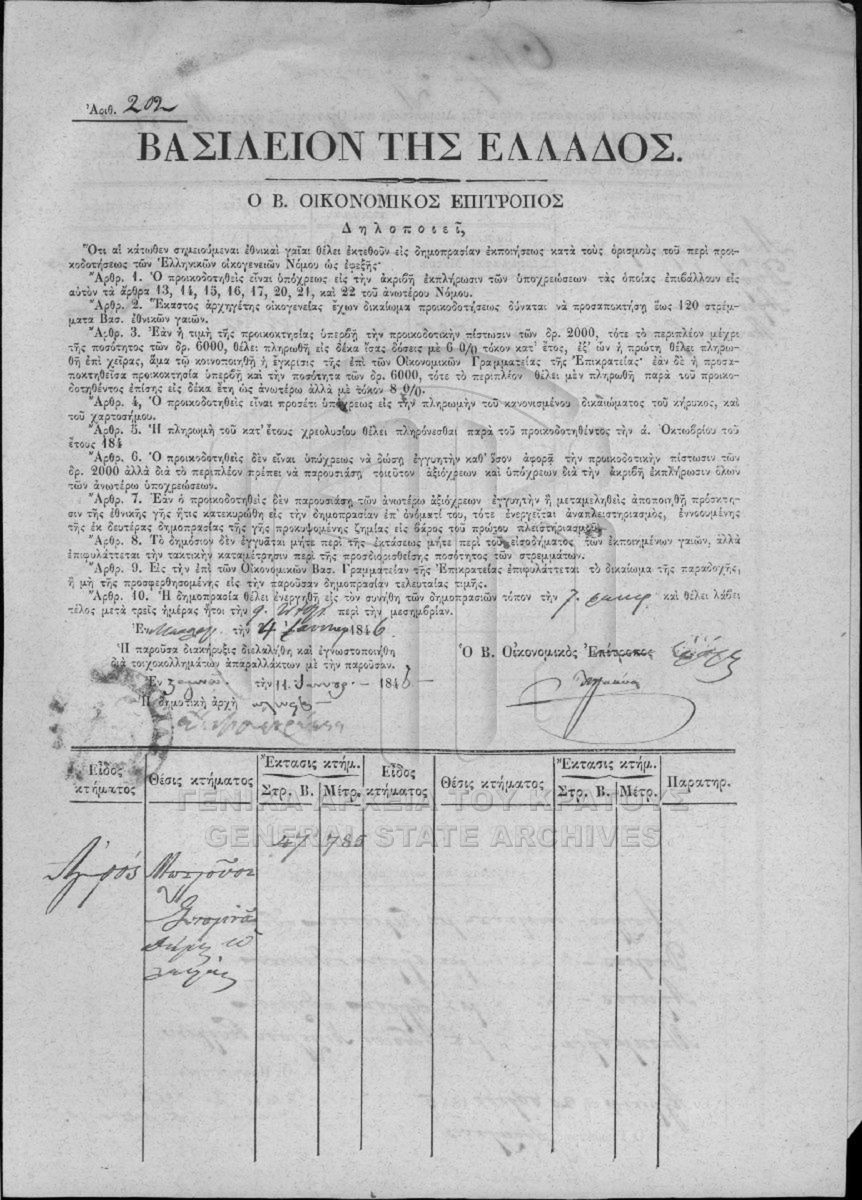 Ἀριθ. 202
ΒΑΣΙΛΕΙΟΝ ΤΗΣ ΕΛΛΑΔΟΣ.
Ο Β. ΟΙΚΟΝΟΜΙΚΟΣ ΕΠΙΤΡΟΠΟΣ
Δηλοποιεῖ,
Ὅτι αἱ κάτωθεν σημειούμεναι ἐθνικαὶ γαῖαι θέλει ἐκτεθοῦν εἰς δημοπρασίαν ἐκποιήσεως κατὰ τοὺς ὁρισμοὺς τοῦ περὶ προι-
κοδοτήσεως τῶν Ἑλληνικῶν οἰκογενειῶν Νόμου ὡς ἐφεξῆς·
Ἄρθρ. 1. Ὁ προικοδοτηθεὶς εἶναι ὑπόχρεως εἰς τὴν ἀκριβῆ ἐκπλήρωσιν τῶν ὑποχρεώσεων τὰς ὁποίας ἐπιβάλλουν εἰς
αὐτὸν τὰ ἄρθρα 13, 14, 15, 16, 17, 20, 21, καὶ 22 τοῦ ἀνωτέρω Νόμου.
Ἄρθρ. 2. Ἕκαστος ἀρχηγέτης οἰκογενείας ἔχων δικαίωμα προικοδοτήσεως δύναται νὰ προσαποκτήσῃ ἕως 120 στρέμ-
ματα Βασ. ἐθνικῶν γαιῶν.
Ἄρθρ. 3. Ἐὰν ἡ τιμὴ τῆς προικοκτησίας ὑπερβῇ τὴν προικοδοτικὴν πίστωσιν τῶν δρ. 2000, τότε τὸ περιπλέον μέχρι
τῆς ποσότητος τῶν δρ. 6000, θέλει πληρωθῆ εἰς δέκα ἴσας δόσεις μὲ 6 0/0 τόκον κατ' ἔτος, ἐξ' ὧν ἡ πρώτη θέλει πληρω-
θῆ ἐπὶ χεῖρας, ἅμα τῷ κοινοποιηθῇ ἡ ἔγκρισις τῆς ἐπὶ τῶν Οἰκονομικῶν Γραμματείας τῆς Ἐπικρατείας· ἐὰν δὲ ἡ προσα-
ποκτηθεῖσα προικοκτησία ὑπερβῇ καὶ τὴν ποσότητα τῶν δρ. 6000, τότε τὸ περιπλέον θέλει μὲν πληρωθῆ παρὰ τοῦ προικο-
δοτηθέντος ἐπίσης εἰς δέκα ἔτη ὡς ἀνωτέρω ἀλλὰ μὲ τόκον 8 0/0.
Ἄρθρ. 4, Ὁ προικοδοτηθεὶς εἶναι προσέτι ὑπόχρεως εἰς τὴν πληρωμὴν τοῦ κανονισμένου δικαιώματος τοῦ κήρυκος, καὶ
τοῦ χαρτοσήμου.
Ἄρθρ. 5. Ἡ πληρωμὴ τοῦ κατ' ἔτους χρεολυσίου θέλει πληρόνεσθαι παρὰ τοῦ προικοδοτηθέντος τὴν ά. Ὀκτωβρίου τοῦ
ἔτους 184
Ἄρθρ. 6. Ὁ προικοδοτηθεὶς δὲν εἶναι ὑπόχρεως νὰ δώσῃ ἐγγυητὴν καθ' ὅσον ἀφορᾷ τὴν προικοδοτικὴν πίστωσιν τῶν
δρ. 2000 ἀλλὰ διὰ τὸ περιπλέον πρέπει νὰ παρουσιάσῃ τοιοῦτον ἀξιόχρεων καὶ ὑπόχρεων διὰ τὴν ἀκριβῆ ἐκπλήρωσιν ὅλων
τῶν ἀνωτέρω ὑποχρεώσεων.
Ἄρθρ. 7. Ἐὰν ὁ προικοδοτηθεὶς δὲν παρουσιάσῃ τὸν ἀνωτέρω ἀξιόχρεων ἐγγυητὴν ἢ μεταμεληθεὶς ἀποποιηθῇ πρόσκτη-
σιν τῆς ἐθνικῆς γῆς ἥτις κατεκυρώθη εἰς τὴν δημοπρασίαν ἐπ' ὀνόματί του, τότε ἐνεργεῖται ἀναπλειστηριασμὸς, ἐννοουμένης
τῆς ἐκ δευτέρας δημοπρασίας τῆς γῆς προκυψομένης ζημίας εἰς βάρος τοῦ πρώτου πλειστηριασμοῦ.
Ἄρθρ. 8. Τὸ δημόσιον δὲν ἐγγυᾶται μήτε περὶ τῆς ἐκτάσεως μήτε περὶ τοῦ εἰσοδήματος τῶν ἐκποιημένων γαιῶν, ἀλλὰ
ἐπιφυλάττεται τὴν τακτικὴν καταμέτρησιν περὶ τῆς προσδιορισθείσης ποσότητος τῶν στρεμμάτων.
Ἄρθρ. 9. Εἰς τὴν ἐπὶ τῶν Οἰκονομικῶν Βασ. Γραμματείαν τῆς Ἐπικρατείας ἐπιφυλάττεται τὸ δικαίωμα τῆς παραδοχῆς,
ἢ μὴ τῆς προσφερθησομένης εἰς τὴν παροῦσαν δημοπρασίαν τελευταίας τιμῆς.
Ἄρθρ. 10. Ἡ δημοπρασία θέλει ἐνεργηθῆ εἰς τὸν συνήθη τῶν δημοπρασιῶν τόπον τὴν 7. καὶ θέλει λάβει
τέλος μετὰ τρεῖς ἡμέρας ἤτοι τὴν 9. περὶ τὴν μεσημβρίαν.
Ἐν τὴν 4 1846
Ἡ παροῦσα διακήρυξις διελαλήθη καὶ ἐγνωστοποιήθη
διὰ τοιχοκολλημάτων ἀπαραλλάκτων μὲ τὴν παροῦσαν.
Ὁ Β. Οἰκονομικὸς Ἐπίτροπος
Ἐν τὴν 11 1846
Ἡ δημοτικὴ ἀρχὴ
Εἶδος κτήματος Θέσις κτήματος Ἔκτασις κτήμ. Στρ. Β. Μέτρ. Εἶδος κτήματος Θέσις κτήματος Ἔκτασις κτήμ. Στρ. Β. Μέτρ. Παρατηρ.
ΓΕΝΙΚΑ ΑΡΧΕΙΑ ΤΟΥ ΚΡΑΤΟΥΣ
GENERAL STATE ARCHIVES
Ἀγρός